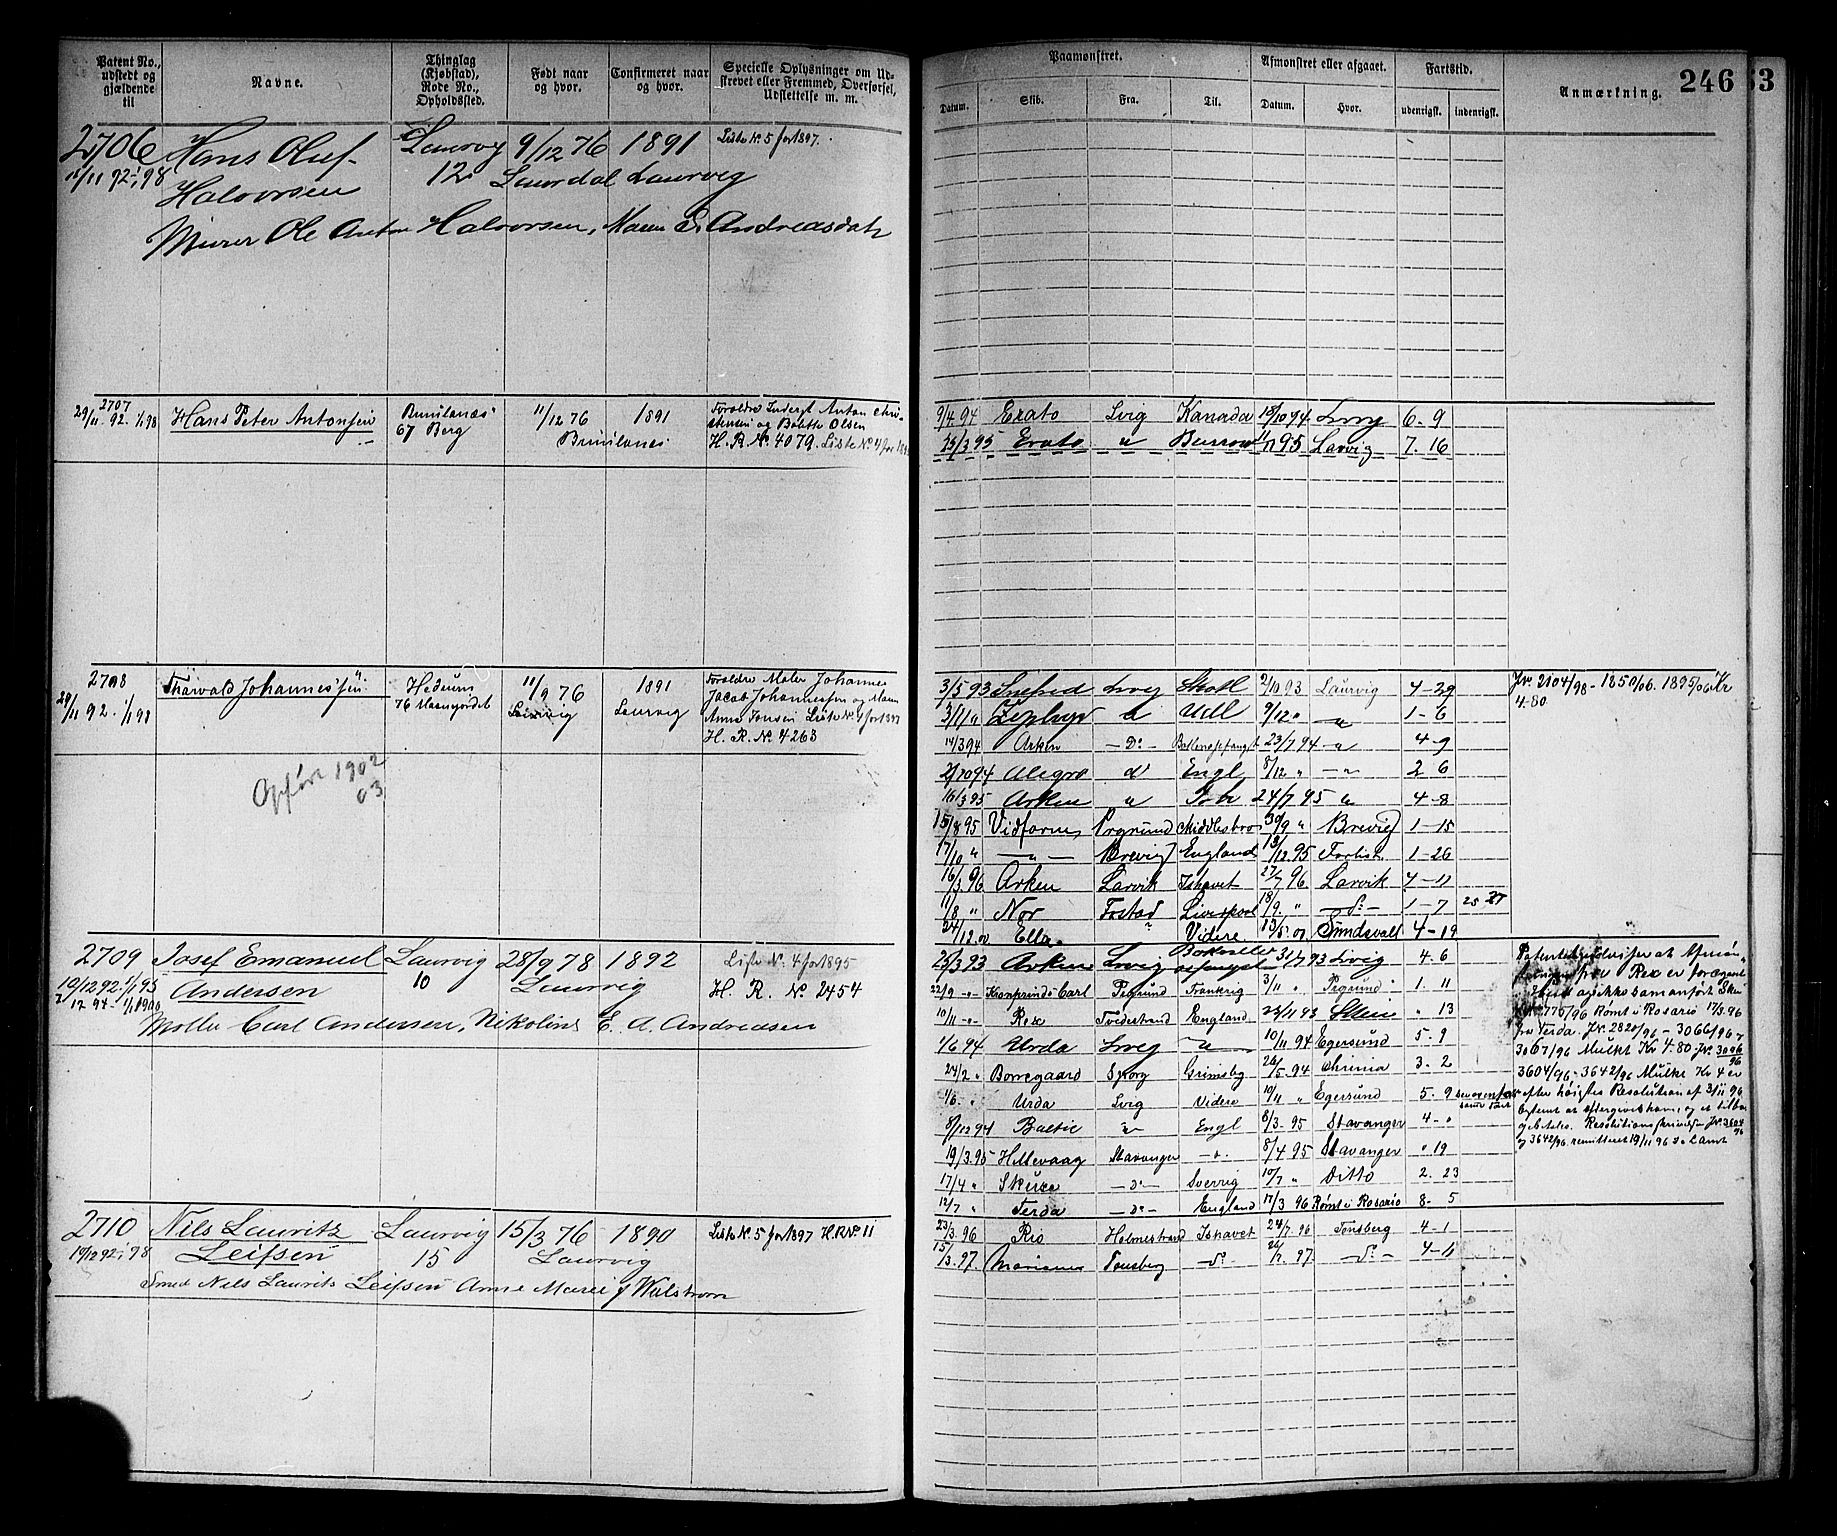 Patent No., udstedt og gjældende til
Navne.
Thinglag (Kjøbstad), Rode No., Opholdssted.
Født naar og hvor.
Confirmeret naar og hvor.
Specielle Oplysninger om Udskrevet eller Fremmed, Overførsel, Udslettelse m. m.
2706 Hans Oluf Laurvig 9/12 76 1891 Liste No. 5 for 1897.
11/11 92 1/1 98 Halvorsen 12 Laurdal Laurvig
Murer Ole Anton Halvorsen, Maren Andreasdatr
2707
29/11 92. 1/1 98 Hans Peter Antonsen Brunlanæs 67 Berg 11/12 76 Brunlanæs 1891
Forældre Anton Christensen og Bolette Olsen
H. R. No. 4079. Liste No. 4 for
2708 Thorvald Johannessen Hedrum 11/9 76 1891 Forældre Maler Johannes
29/11 92. 1/1 98 76 Laurvig Laurvig Jacob Johannessen og
Anne Jensen Liste No. 4 for 1897
H. R. No. 4263
Opføre 1902
03
2709 Josef Emanuel Laurvig 28/9 78 1892 Liste No. 4 for 1895
19/12 92. 1/1 95 Andersen 10 Laurvig H. R. No. 2454
7/12 94. 1/1 1900
Møller Carl Andersen, Nikoline E. A. Andreasen
2710 Nils Lauritz Laurvig 15/3 76 1890 Liste No. 5 for 1897 H.R.No. 11
19/12 92. 1/1 98 Leifsen 15 Laurvig
Smed Nils Laurits Leifsen Anne Marie f Walstrøm
Paamønstret.
Afmønstret eller afgaaet.
Fartstid.
Anmærkning.
246
53
Datum. Skib. Fra. Til. Datum. Hvor. udenrigsk. indenrigsk.
9/4 94 Erato Lvig Kanada 18/10 94 Lvig 6. 9
25/3 95 Erato " 11/11 95 Larvig 7. 16
3/5 93 Lvig Skotl 2/10 93 Laurvig 4-29
3/11 " Zephyr " Udl 9/12 " " 1-6
14/3 94 Arken -Do- 23/7 94 " 4-9
2/10 94 Engl 8/12 " -"- 2 6
16/3 95 Arken " 24/7 95 " 4-8
15/8 95 Vidfarne Prgrund Middlesbro 30/9 " Brevig 1-15
17/10 " -"- Brevig England 13/12 95 Forlist 1-26
16/3 96 Arken Larvik Ishavet 27/7 96 Larvik 4-11
11/8 " Nor Fostad Liverpool 18/9 " -Do- 1-7 25 27
24/12 00 Ella " Videre 13/5 01 Sundsvall 4-19
Jr. 2104/98 - 1850/06. 1895/06 Kr
4.80
26/3 93 Arken Lvig 31/7 93 Lvig 4.6
22/9 -"- Kronprinds Carl Prgrund Frankrig 3/11 " Prgrund 1. 11
10/11 -"- Rex Tvedestrand England 23/11 93 Skien " 13
1/6 94 Urda Lvig " 10/11 94 Egersund 5. 9
24/2 " Borregaard Spborg Grimsby 26/5 94 Chrinia 3. 2
1/6 " Urda Lvig Videre 10/11 " Egersund 5. 9
8/12 94 Baltic " Engl 8/3 95 Stavanger 4 - "
19/3 95 Hillevaag Stavanger -"- 8/4 95 Stavanger " 19
17/4 " -Do- Sverrig 10/7 " Ditto 2. 23
12/7 " Terda -Do- England 17/3 96 Rømt i Rosario 8. 5
Patentet udviser at Afmøn-
fra Rex er foregaaet
og ikke som anført Skien
Jr. 770/96 Rømt i Rosario 17/3 96
fra Terda. Jr. 2820/96 - 3066/96
3067/96 Mulkt Kr 4.80 Jr. 3096/96
3604/96 - 3642/96 Mulkt Kr 4 er
efter høieste Resolution af 3/11 96
3642/96 remitteret 19/11 96
23/3 96 Rio Holmestrand Ishavet 24/7 96 Tønsberg 4-1
15/3 97 Tønsberg -Do- 26/7 97 -Do- 4-11